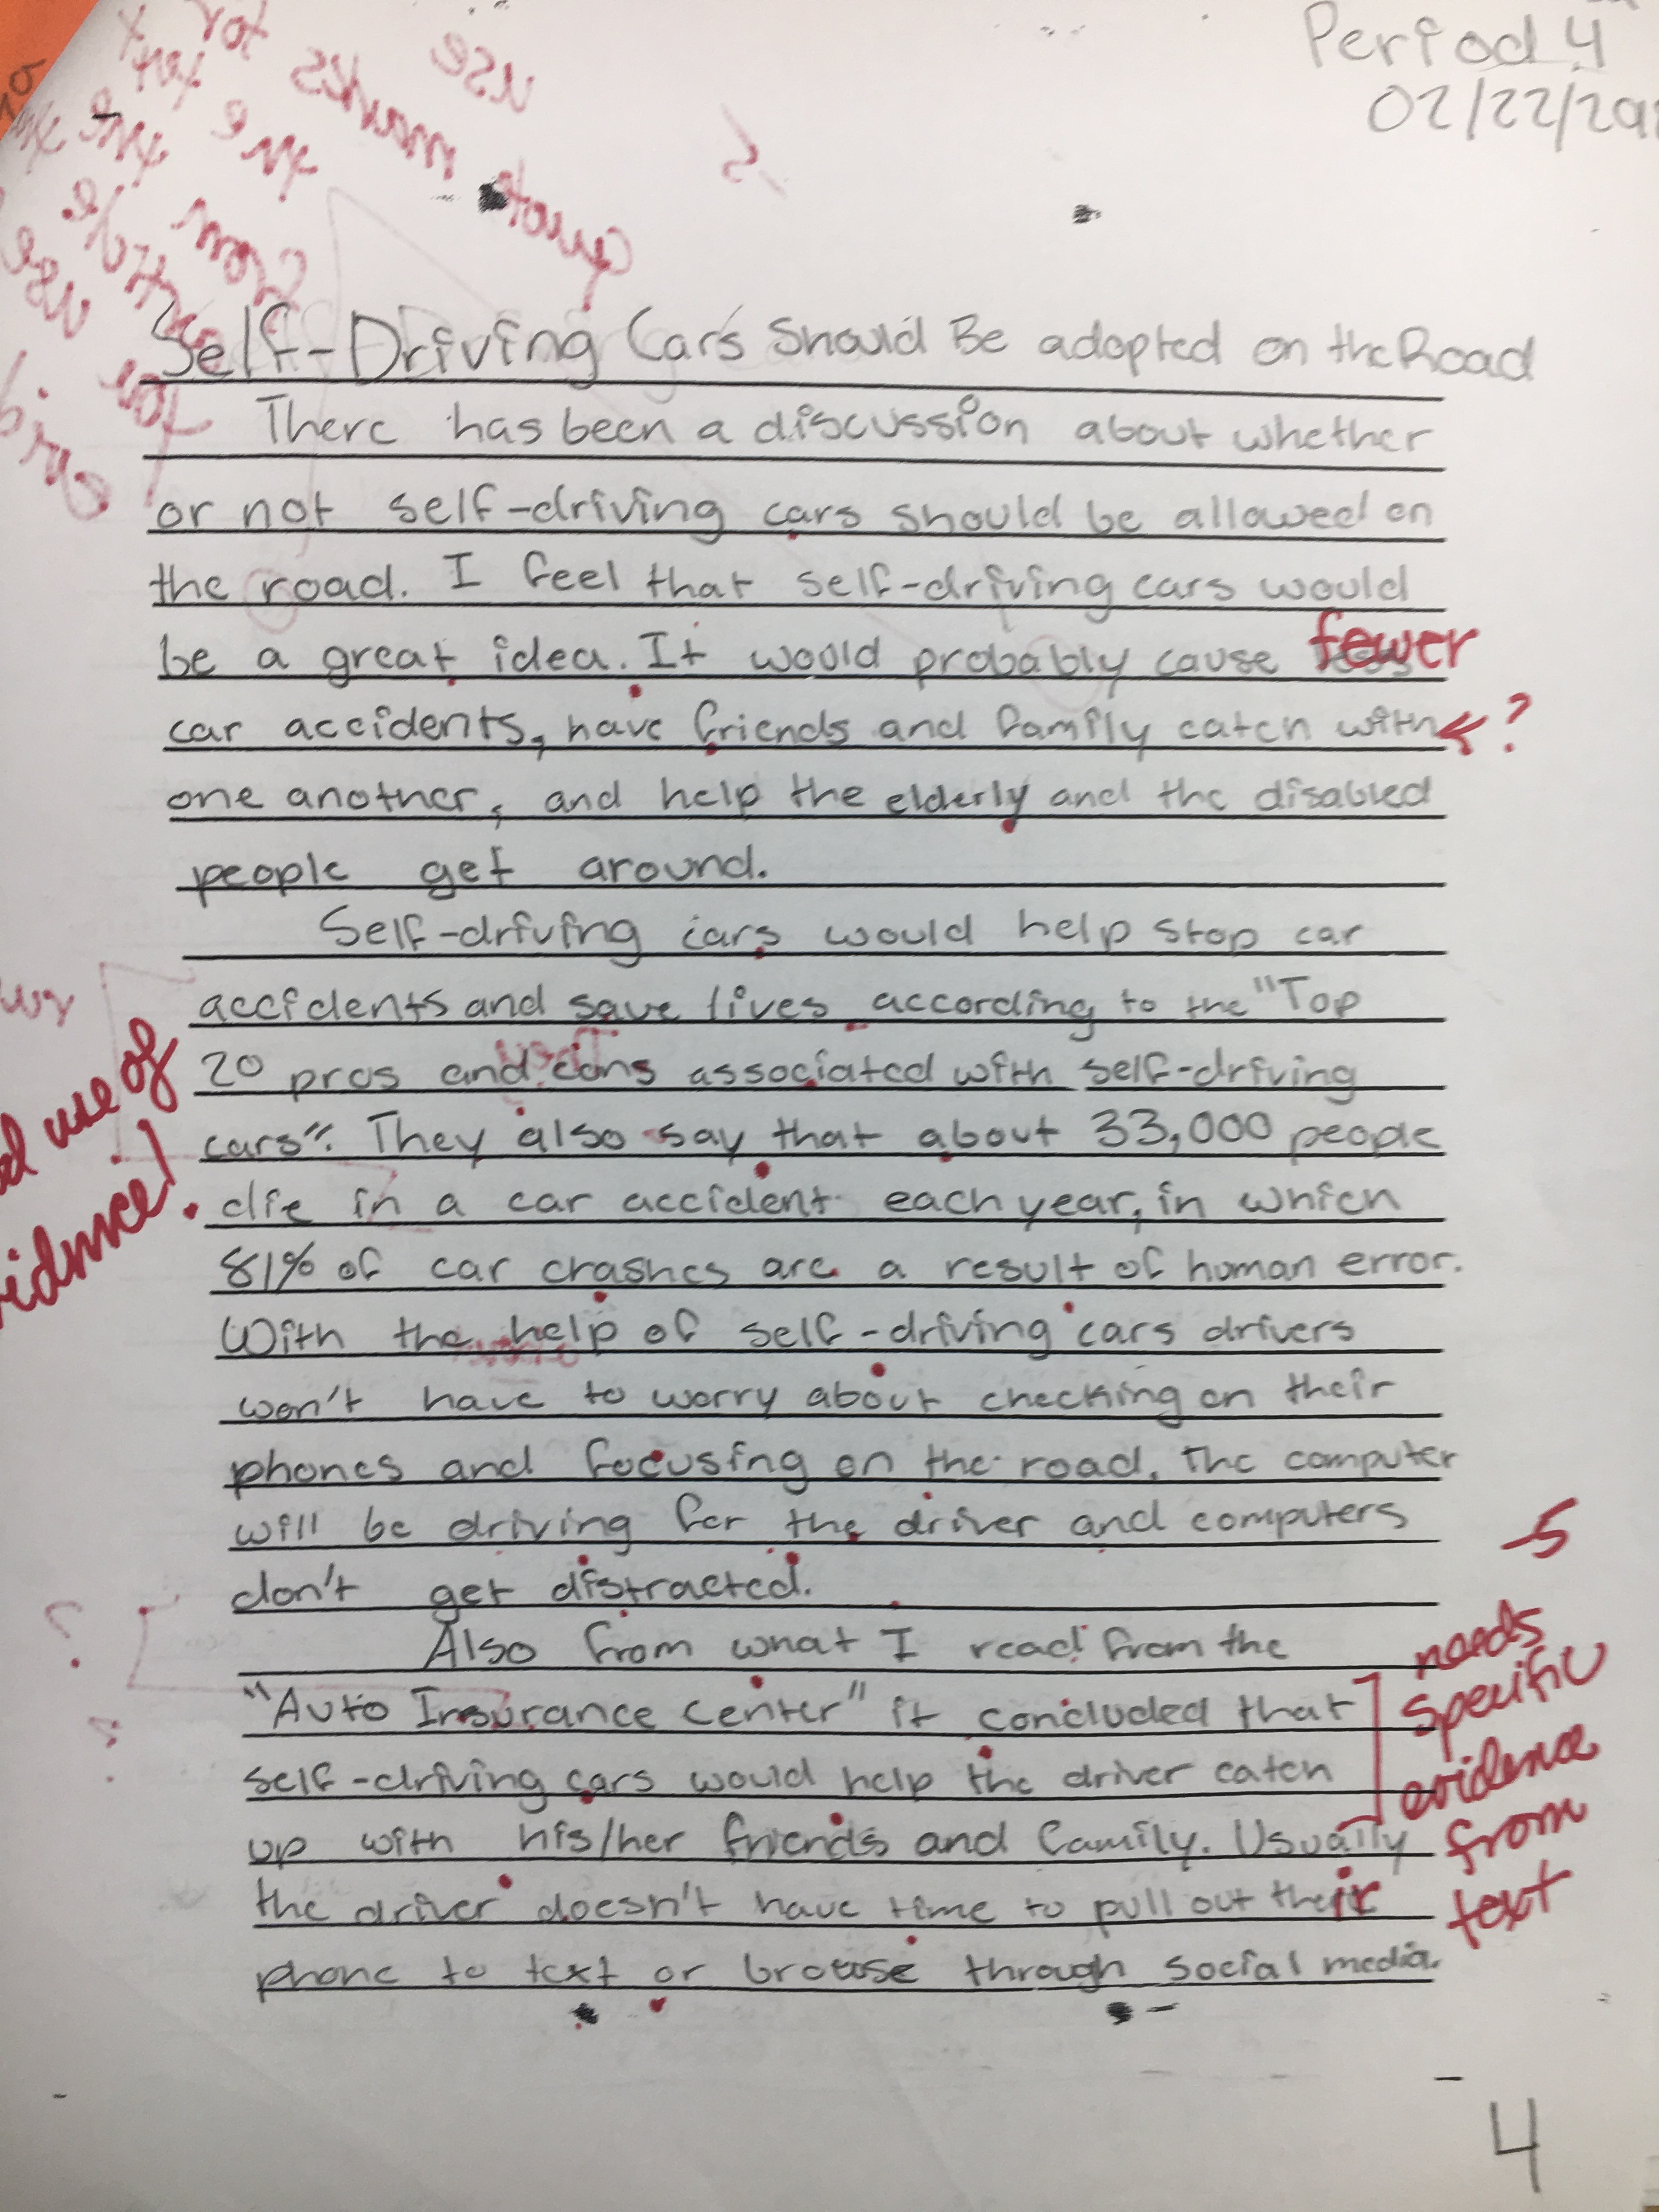 Period 4
02/22/201
Self-Driving Cars Should Be adopted on the Road
There has been a discussion about whether
or not self-driving cars should be allowed on
the road. I feel that self-driving cars would
be a great idea. It would probably cause fewer
car accidents, have friends and family catch with ?
one another, and help the elderly and the disabled
people get around.
Self-driving cars would help stop car
accidents and save lives according to the "Top
20 pros and cons associated with self-driving
cars". They also say that about 33,000 people
die in a car accident each year, in which
81% of car crashes are a result of human error.
With the help of self-driving cars drivers
won't have to worry about checking on their
phones and focusing on the road. The computer
will be driving for the driver and computers
don't get distracted.
Also from what I read from the
"Auto Insurance Center" it concluded that
self-driving cars would help the driver catch
up with his/her friends and family. Usually
the driver doesn't have time to pull out their
phone to text or browse through social media.
use of
-5
needs
specific
evidence
from
text
4
use
quote marks for
the text
from